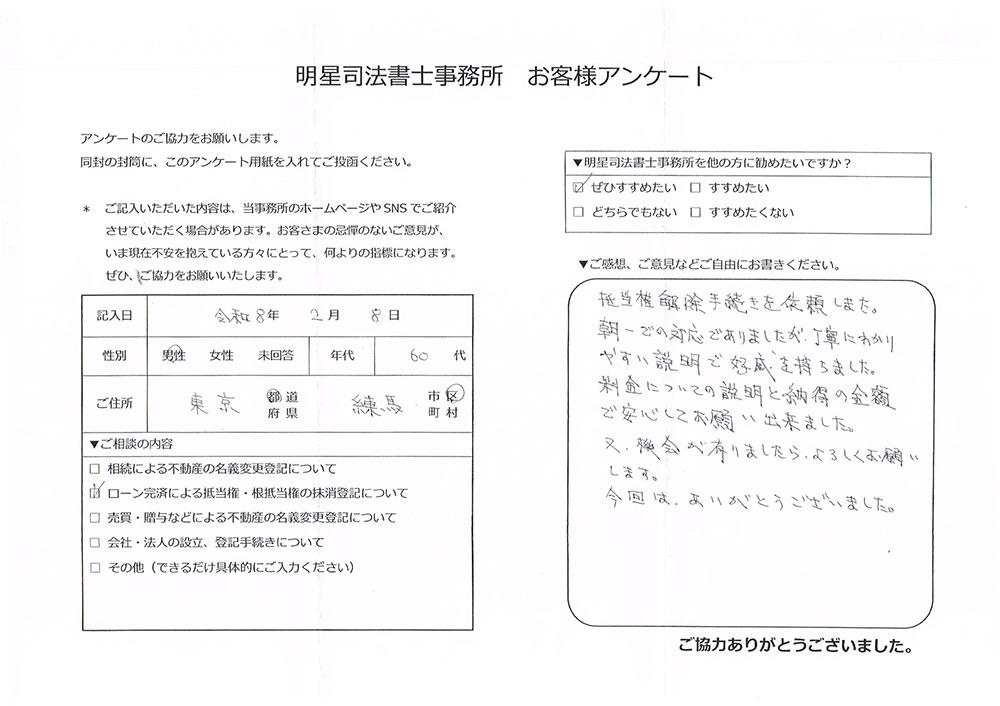 明星司法書士事務所　お客様アンケート
アンケートのご協力をお願いします。
同封の封筒に、このアンケート用紙を入れてご投函ください。
＊　ご記入いただいた内容は、当事務所のホームページやSNSでご紹介
させていただく場合があります。お客さまの忌憚のないご意見が、
いま現在不安を抱えている方々にとって、何よりの指標になります。
ぜひ、ご協力をお願いいたします。
記入日　令和8年　2月　8日
性別　男性　女性　未回答　年代　60代
ご住所　東京　都道府県　練馬　市区町村
▼ご相談の内容
□ 相続による不動産の名義変更登記について
☑ ローン完済による抵当権・根抵当権の抹消登記について
□ 売買・贈与などによる不動産の名義変更登記について
□ 会社・法人の設立、登記手続きについて
□ その他（できるだけ具体的にご入力ください）
▼明星司法書士事務所を他の方に勧めたいですか？
☑ ぜひすすめたい　□ すすめたい
□ どちらでもない　□ すすめたくない
▼ご感想、ご意見などご自由にお書きください。
抵当権解除手続きを依頼しました。
朝一での対応でありましたが、丁寧にわかり
やすい説明で好感を持ちました。
料金についての説明と納得の金額
で安心してお願い出来ました。
又、機会が有りましたら、よろしくお願い
します。
今回は、ありがとうございました。
ご協力ありがとうございました。